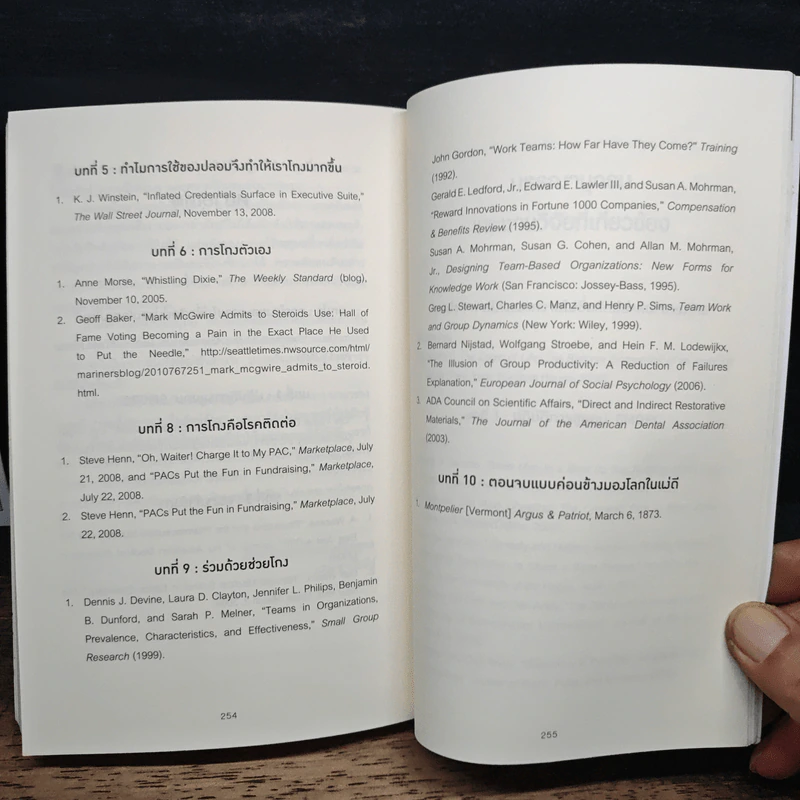 บทที่ 5 : ทำไมการใช้ของปลอมจึงทำให้เราโกงมากขึ้น
1. K. J. Winstein, “Inflated Credentials Surface in Executive Suite,”
The Wall Street Journal, November 13, 2008.
บทที่ 6 : การโกงตัวเอง
1. Anne Morse, “Whistling Dixie,” The Weekly Standard (blog),
November 10, 2005.
2. Geoff Baker, “Mark McGwire Admits to Steroids Use: Hall of
Fame Voting Becoming a Pain in the Exact Place He Used
to Put the Needle,” http://seattletimes.nwsource.com/html/
marinersblog/2010767251_mark_mcgwire_admits_to_steroid.
html.
บทที่ 8 : การโกงคือโรคติดต่อ
1. Steve Henn, “Oh, Waiter! Charge It to My PAC,” Marketplace, July
21, 2008, and “PACs Put the Fun in Fundraising,” Marketplace,
July 22, 2008.
2. Steve Henn, “PACs Put the Fun in Fundraising,” Marketplace, July
22, 2008.
บทที่ 9 : ร่วมด้วยช่วยโกง
1. Dennis J. Devine, Laura D. Clayton, Jennifer L. Philips, Benjamin
B. Dunford, and Sarah P. Melner, “Teams in Organizations,
Prevalence, Characteristics, and Effectiveness,” Small Group
Research (1999).
254
John Gordon, “Work Teams: How Far Have They Come?” Training
(1992).
Gerald E. Ledford, Jr., Edward E. Lawler III, and Susan A. Mohrman,
“Reward Innovations in Fortune 1000 Companies,” Compensation
& Benefits Review (1995).
Susan A. Mohrman, Susan G. Cohen, and Allan M. Mohrman,
Jr., Designing Team-Based Organizations: New Forms for
Knowledge Work (San Francisco: Jossey-Bass, 1995).
Greg L. Stewart, Charles C. Manz, and Henry P. Sims, Team Work
and Group Dynamics (New York: Wiley, 1999).
2. Bernard Nijstad, Wolfgang Stroebe, and Hein F. M. Lodewijkx,
“The Illusion of Group Productivity: A Reduction of Failures
Explanation,” European Journal of Social Psychology (2006).
3. ADA Council on Scientific Affairs, “Direct and Indirect Restorative
Materials,” The Journal of the American Dental Association
(2003).
บทที่ 10 : ตอนจบแบบค่อนข้างมองโลกในแง่ดี
1. Montpelier [Vermont] Argus & Patriot, March 6, 1873.
255